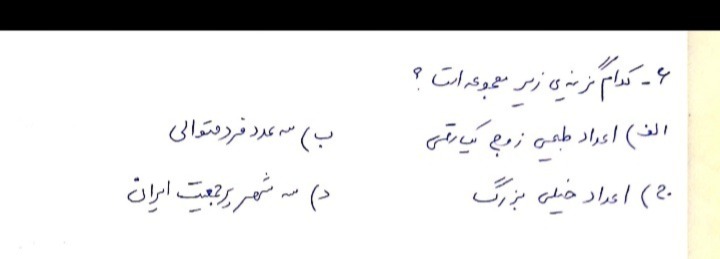 ۶- کدام گزینه‌ی زیر مجموعه است ؟
الف) اعداد طبیعی زوج یک رقمی ب) سه عدد فرد متوالی
ج) اعداد خیلی بزرگ د) سه شهر پرجمعیت ایران